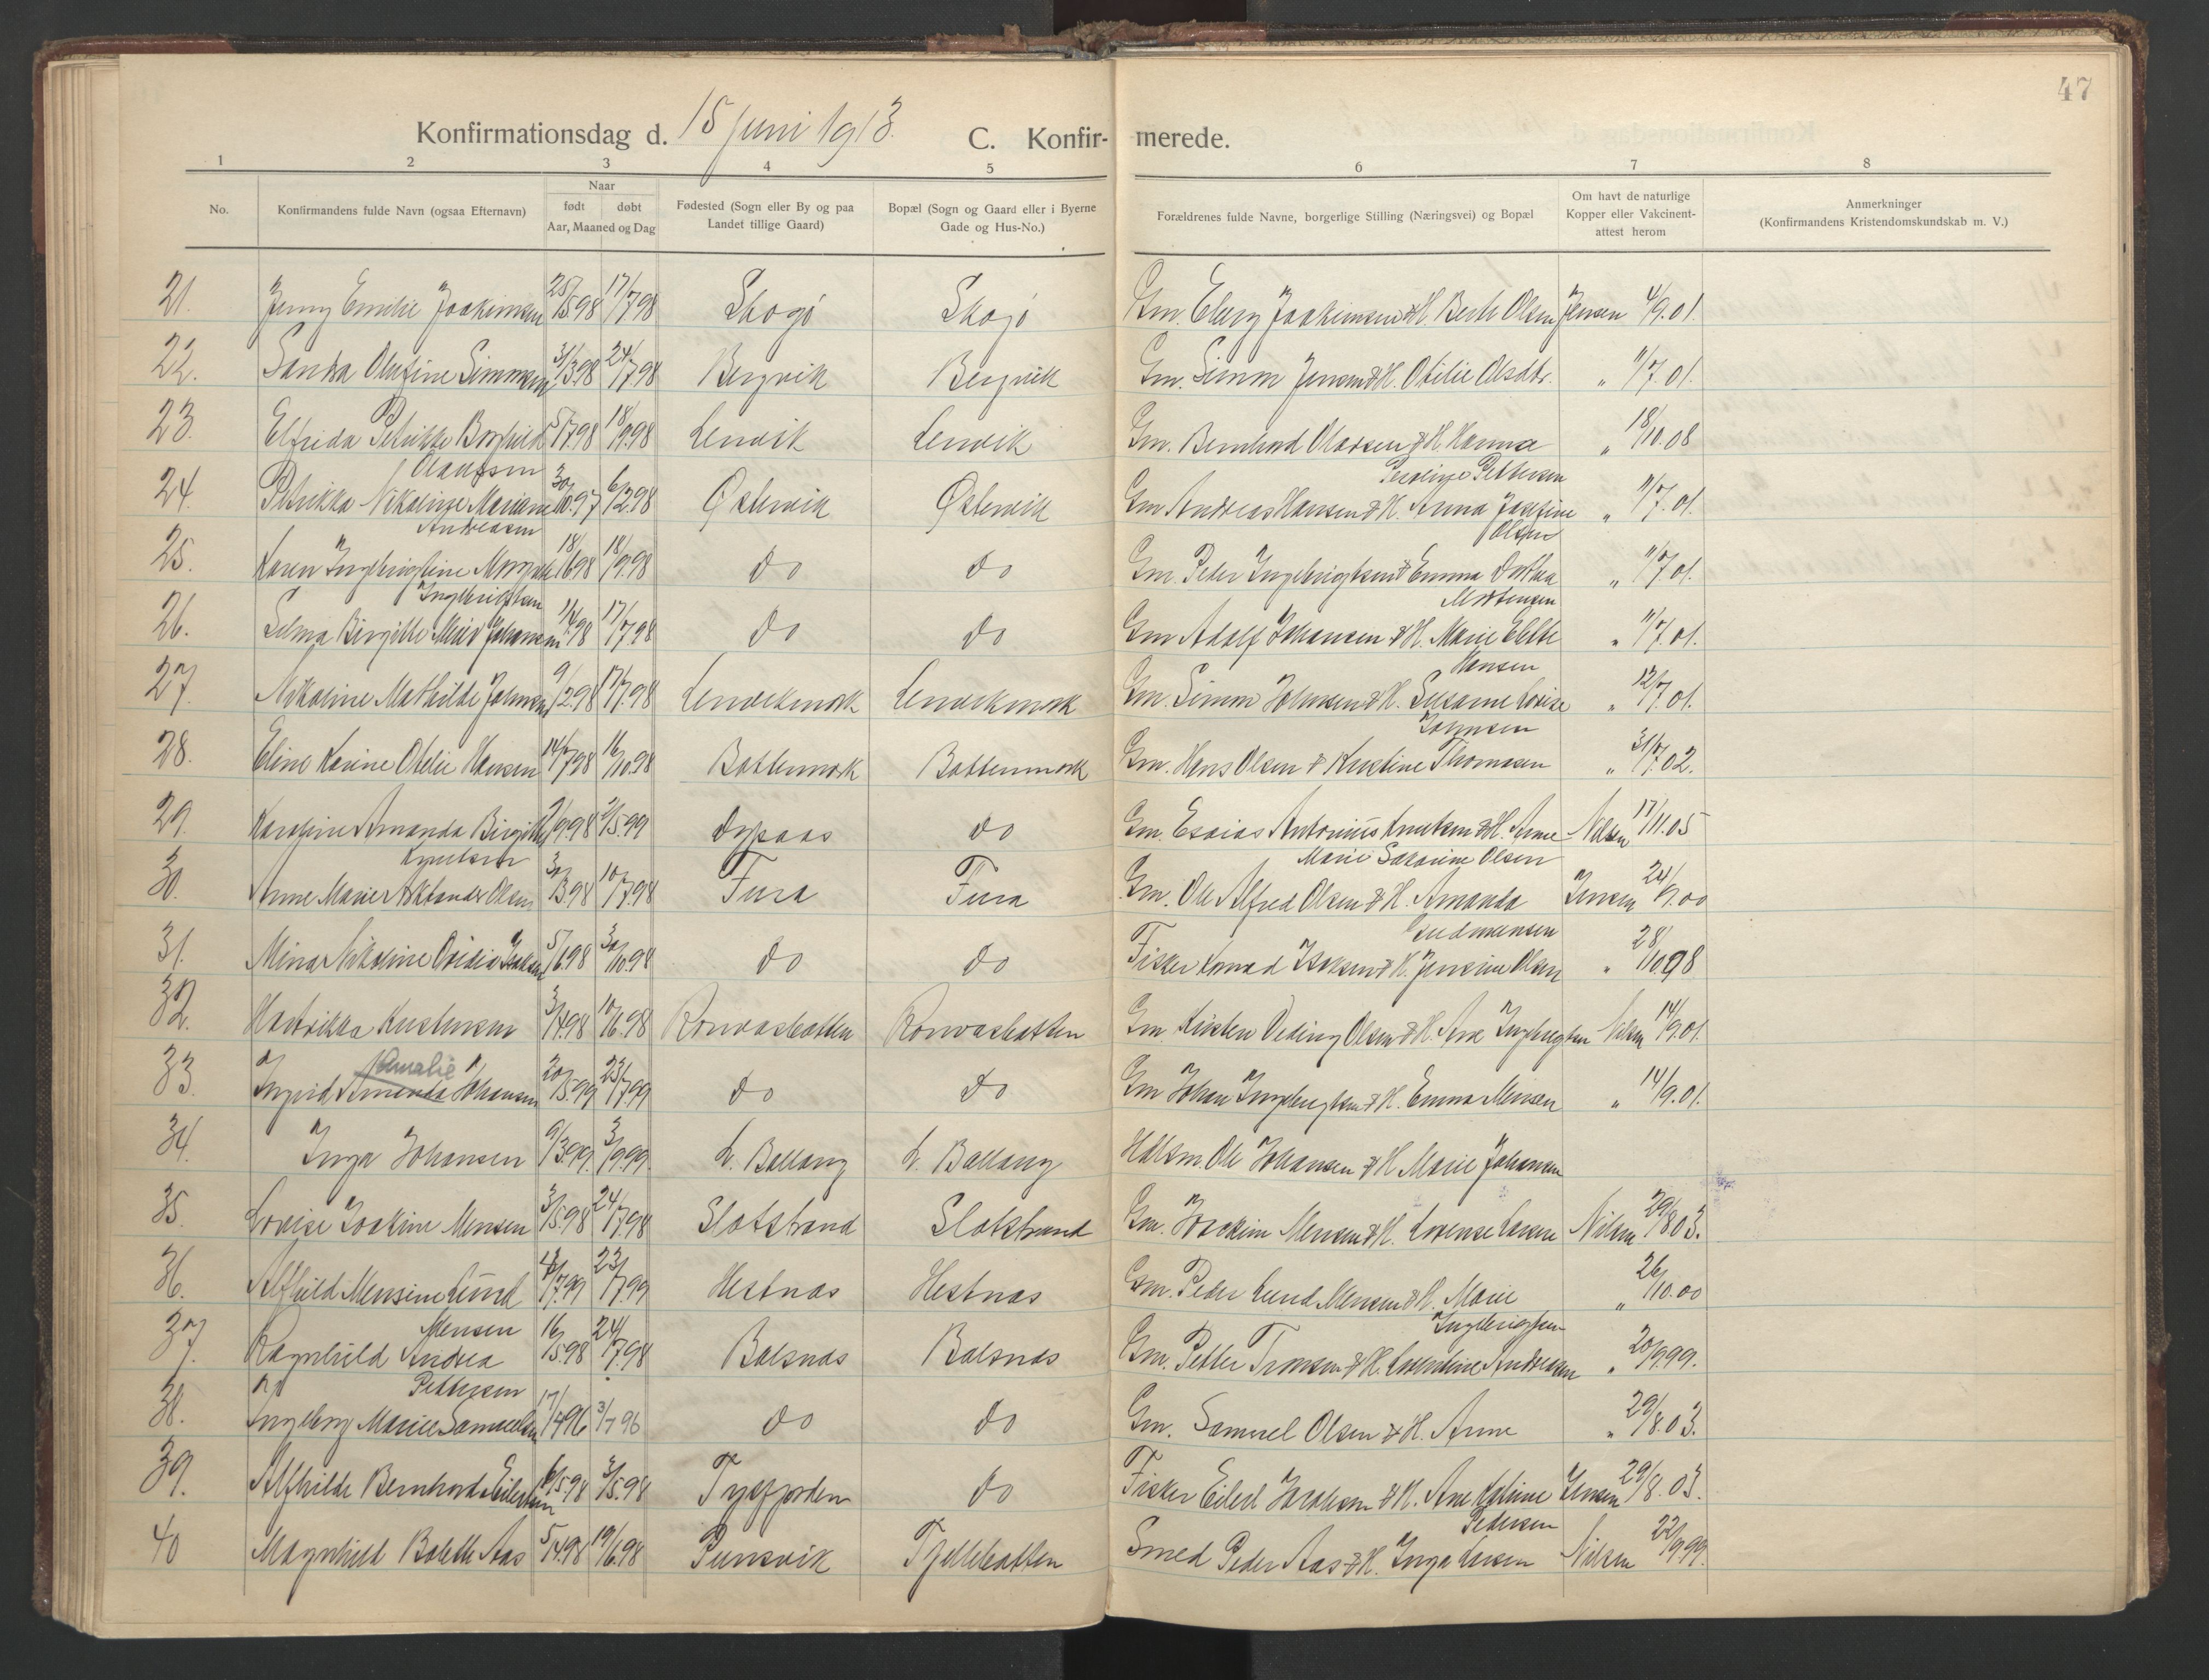 47
Konfirmationsdag d. 15 Juni 1913. C. Konfir- merede.
1 2 3 4 5 6 7 8
No.
Konfirmandens fulde Navn (ogsaa Efternavn)
Naar
født døbt
Aar, Maaned og Dag
Fødested (Sogn eller By og paa
Landet tillige Gaard)
Bopæl (Sogn og Gaard eller i Byerne
Gade og Hus-No.)
Forældrenes fulde Navne, borgerlige Stilling (Næringsvei) og Bopæl
Om havt de naturlige
Kopper eller Vakcinent-
attest herom
Anmerkninger
(Konfirmandens Kristendomskundskab m. V.)
21. Jenny Emilie Joakimsen 25/5 98 17/7 98 Skogö Skogö Gm. Joakimsen & H. Berte Olsen Jensen 4/9.01.
22. Sandra Olufine Simonsen 31/3.98 24/7.98 Bergvik Bergvik Gm. Simon Jensen & H. Otilie Olsdtr. " 11/7.01.
23. Elfrida Petrikke Borghild 5/7.98 18/9.98 Lenvik Lenvik Gm. Bernhard Olavsen & H. Hanna " 18/10.08
Olaussen Pettersen
24. Petrikka Nikoline Mariane 30/10.97 6/2.98 Østervik Østervik Gm. Andreas Hansen & H. Anna Josefine " 11/7.01.
Andreasen Olsen
25. Karen Ingebrigtine 18/6.98 18/9.98 do do Gm. Peder Ingebrigtsen & Emma Dorthea " 11/7.01.
Ingebrigtsen Mortensen
26. Selma Birgitte Marie Johansen 17/7.98 do do Gm. Adolf Johansen & H. Marie " 11/7.01.
Hansen
27. Nikoline Mathilde Johnsen 9/2.98 17/7.98 Lenvikmark Lenvikmark Gm. Simon Johnsen & H. Susanne Lovise " 12/7.01.
Johnsen
28. Eline Karine Otelie Hansen 14/7.98 16/10.98 Bottenmark Bottenmark Gm. Hans Olsen & Kristine Thomassen " 31/7.02.
29. Karoline Amanda Birgitte 9.98 5.99 Dypaas do Gm. Esaias Antonius Knutsen & H. Anne Nilsen 17/11.05
Knutsen Marie Olsen
30. Anne Marie Olsen 30/3.98 10/7.98 Fura Fura Gm. Ole Alfred Olsen & H. Amanda Jensen 24/9.00
Gudmunsen
31. Mina Nikoline Ovidia Isaksen 5/6.98 30/10.98 do do Fisker Konrad Isaksen & H. Jensine Olsen " 28/10 98
32. Hartvikka Kristensen 3/4.98 10/6.98 Ronvasbotten Ronvasbotten Gm. Kristen Olsen & H. Ane Ingebrigtsen Nilsen 14/9.01.
Amalie
33. Ingrid Amanda Johansen 20/5.99 23/7.99 do do Gm. Johan Ingebrigtsen & H. Emma Mensen " 14/9.01.
34. Inga Johansen 9/3.99. 3/9.99. L. Ballang L. Ballang Ole Johansen & H. Marie Johansen
35. Lovise Joakine Mensen 3/5.98 24/7.98 Slotstrand Slotstrand Gm. Joackim Mensen & H. Lorense Larsen Nilsen 29/8.03.
36. Alfhild Mensine Lund 7.99 23/7.99 Hestnas Hestnas Gm. Peder Lund Mensen & H. Marie " 26/10.00
Mensen Ingebrigtsen
37. Ragnhild Andrea 16/5.98 24/7.98 Balsnas Balsnas Gm. Petter Tronsen & H. Andreasen " 20/9.99.
Pettersen
38. Ingeborg Marie Samuelsen 17/4 96 3/7 96 do do Gm. Samuel Olsen & H. Anne " 29/8.03.
39. Alfhilde Bernharda Eilertsen 5.98 5.98 Tysfjorden do Fisker Eilert Jacobsen & H. Ane Katrine Jensen 29/8.03.
Pedersen
40 Magnhild Bolette Aas 5/4.98 19/6.98 Punsvik Tjellebotten Smed Peder Aas & H. Inga Larsen Nilsen 22/9.99.